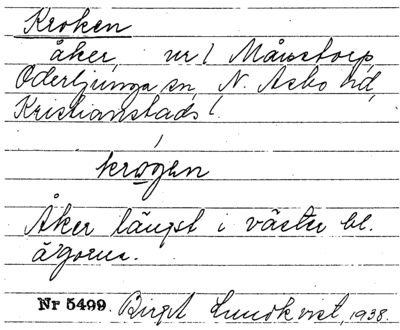 Kroken
åker, nr 1 Månstorp
Oderljunga sn, N. Åsbo hd,
Kristianstads l.
krogen
Åker längst i väster bl.
ägorna.
Nr 5499. Birgit Lundkvist, 1938.